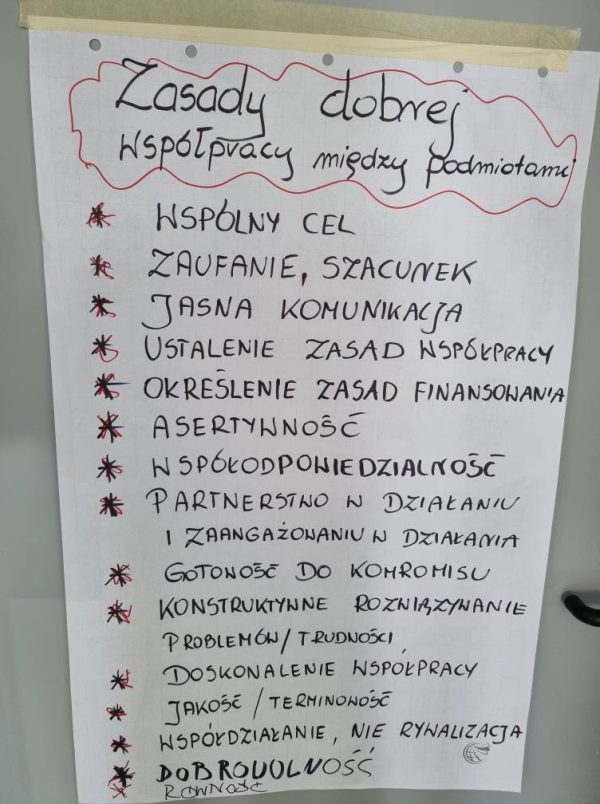 Zasady dobrej
współpracy między podmiotami
* WSPÓLNY CEL
* ZAUFANIE, SZACUNEK
* JASNA KOMUNIKACJA
* USTALENIE ZASAD WSPÓŁPRACY
* OKREŚLENIE ZASAD FINANSOWANIA
* ASERTYWNOŚĆ
* WSPÓŁODPOWIEDZIALNOŚĆ
* PARTNERSTWO W DZIAŁANIU
I ZAANGAŻOWANIU W DZIAŁANIA
* GOTOWOŚĆ DO KOMROMISU
* KONSTRUKTYWNE ROZWIĄZYWANIE
PROBLEMÓW/TRUDNOŚCI
* DOSKONALENIE WSPÓŁPRACY
* JAKOŚĆ / TERMINOWOŚĆ
* WSPÓŁDZIAŁANIE, NIE RYWALIZACJA
* DOBROWOLNOŚĆ
RÓWNOŚĆ